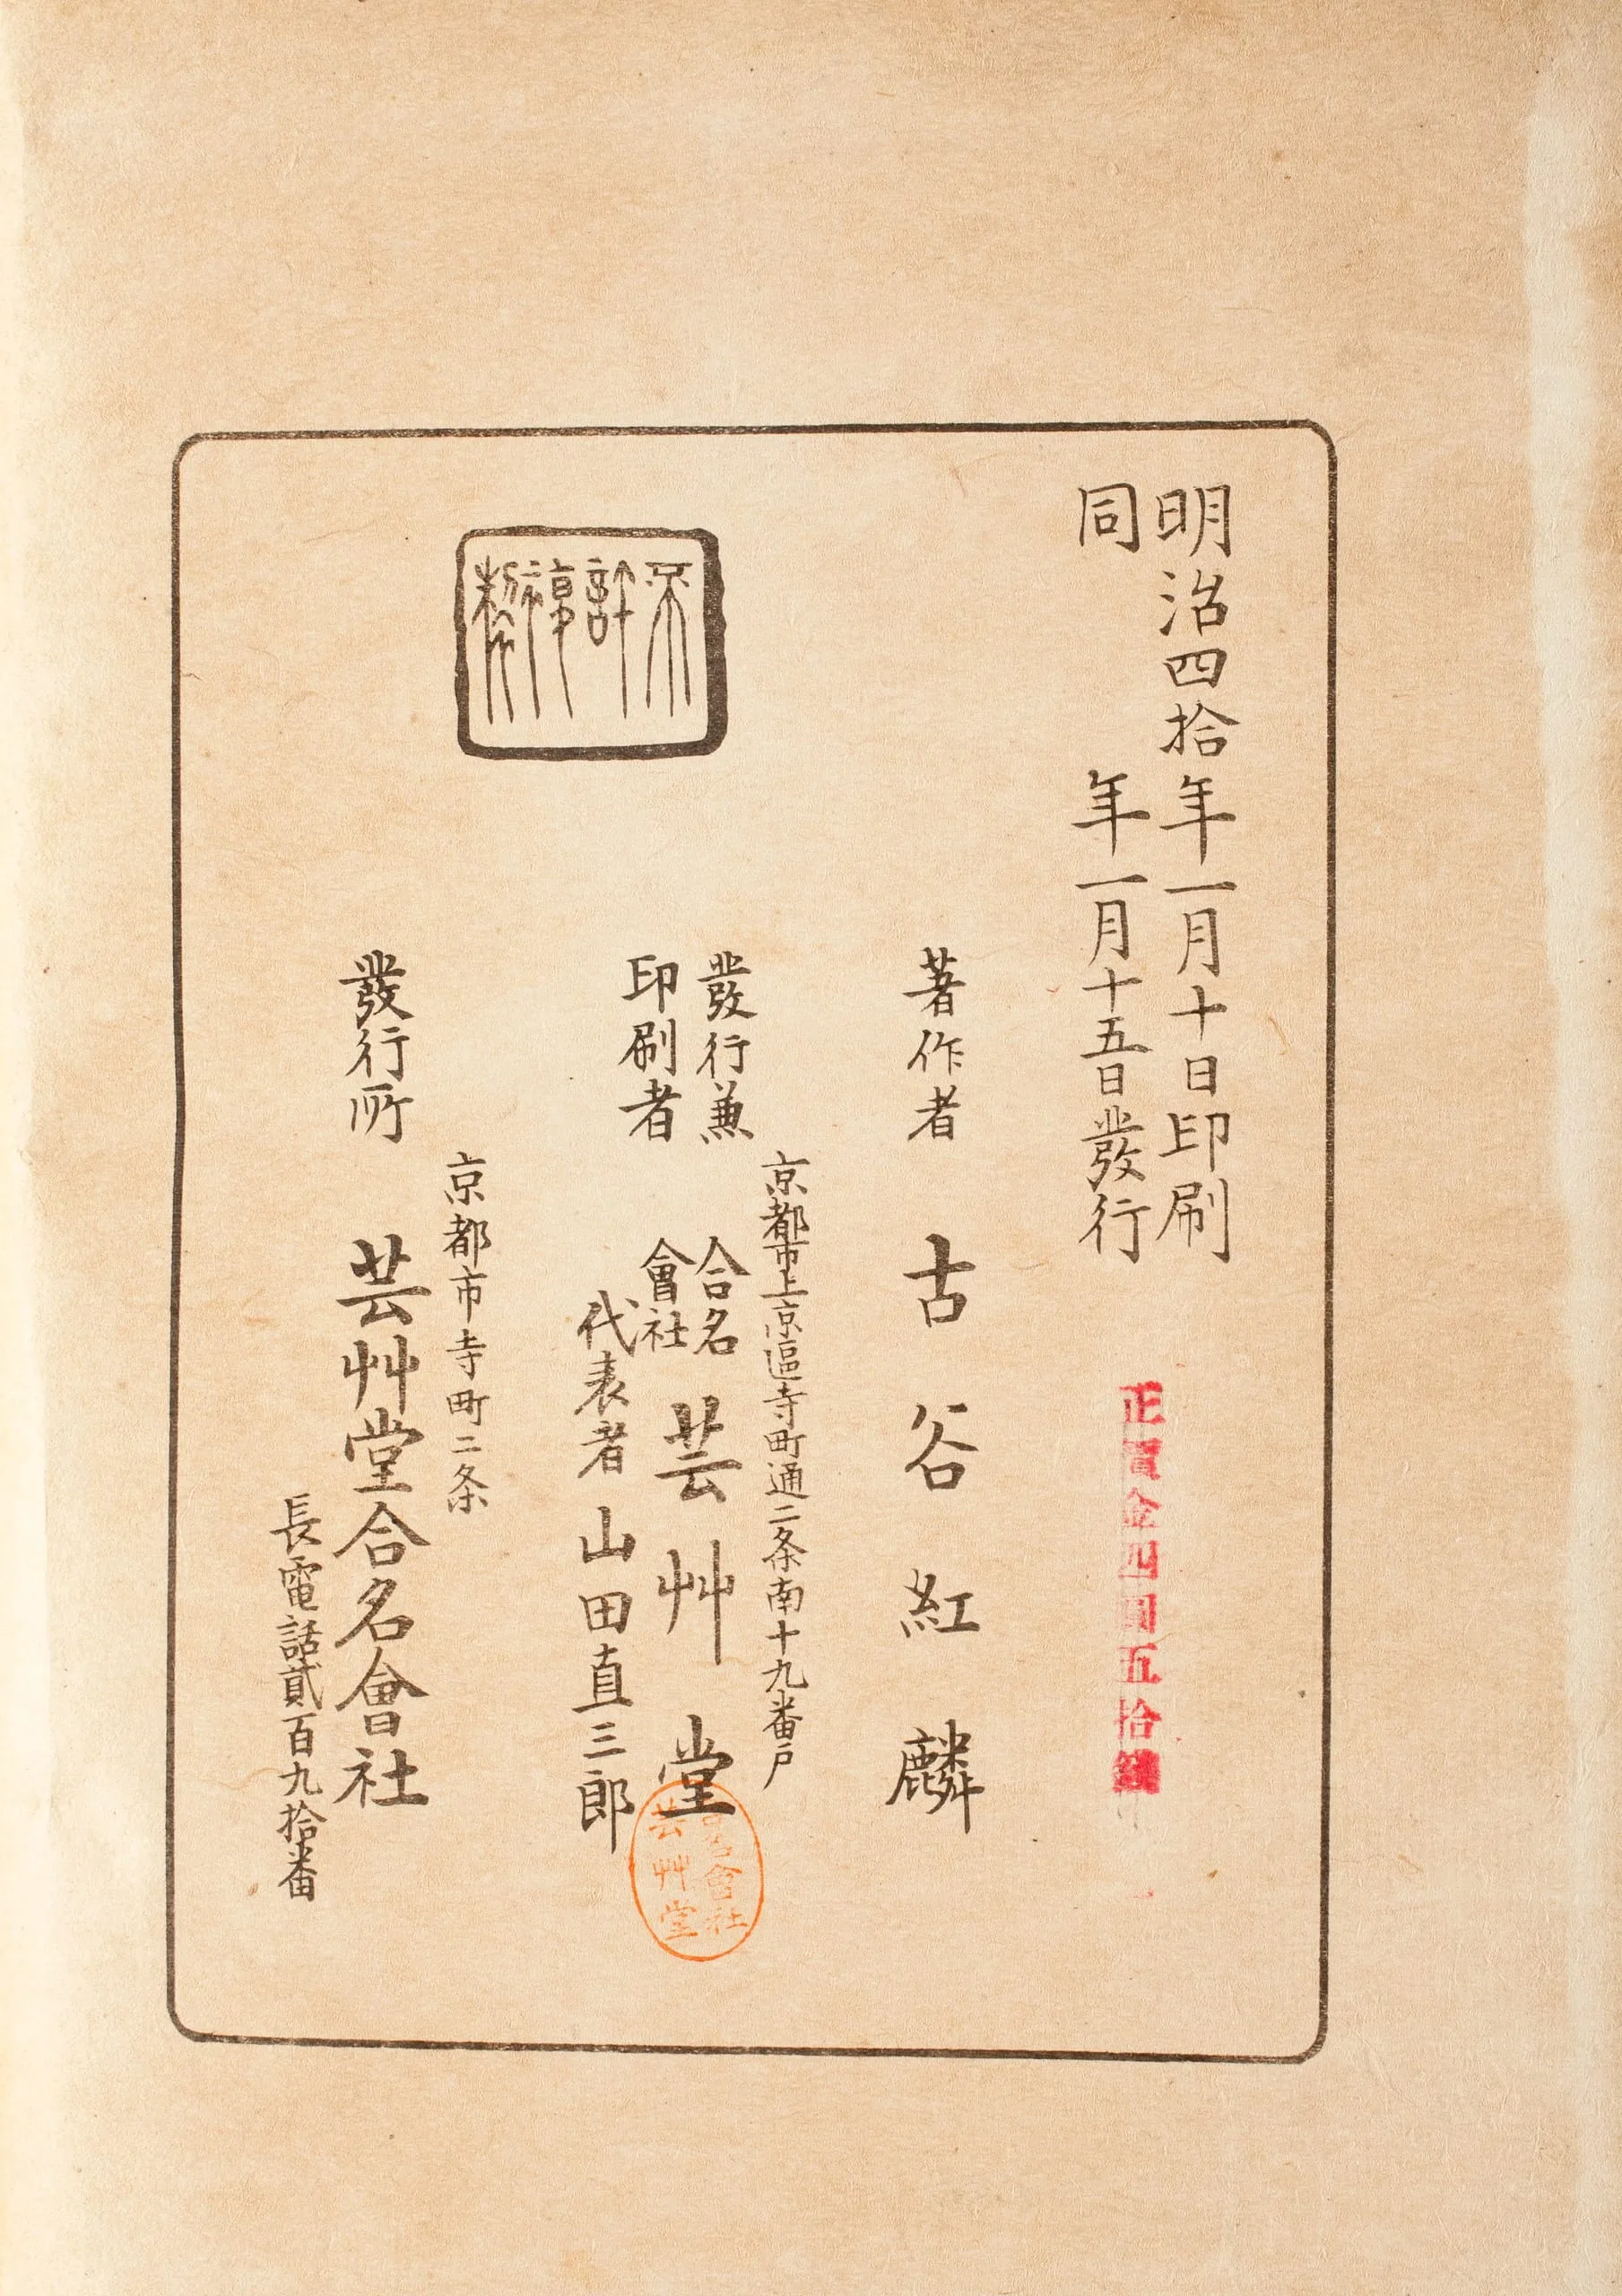 明治四拾年一月十日印刷
同年一月十五日發行
正價金四圓五拾錢
著作者 古谷紅麟
京都市上京區寺町通二条南十九番戸
發行兼
印刷者
合名
會社
芸艸堂
代表者 山田直三郎
名會社
芸艸堂
不許複製
京都市寺町二条
發行所 芸艸堂合名會社
長電話貳百九拾番